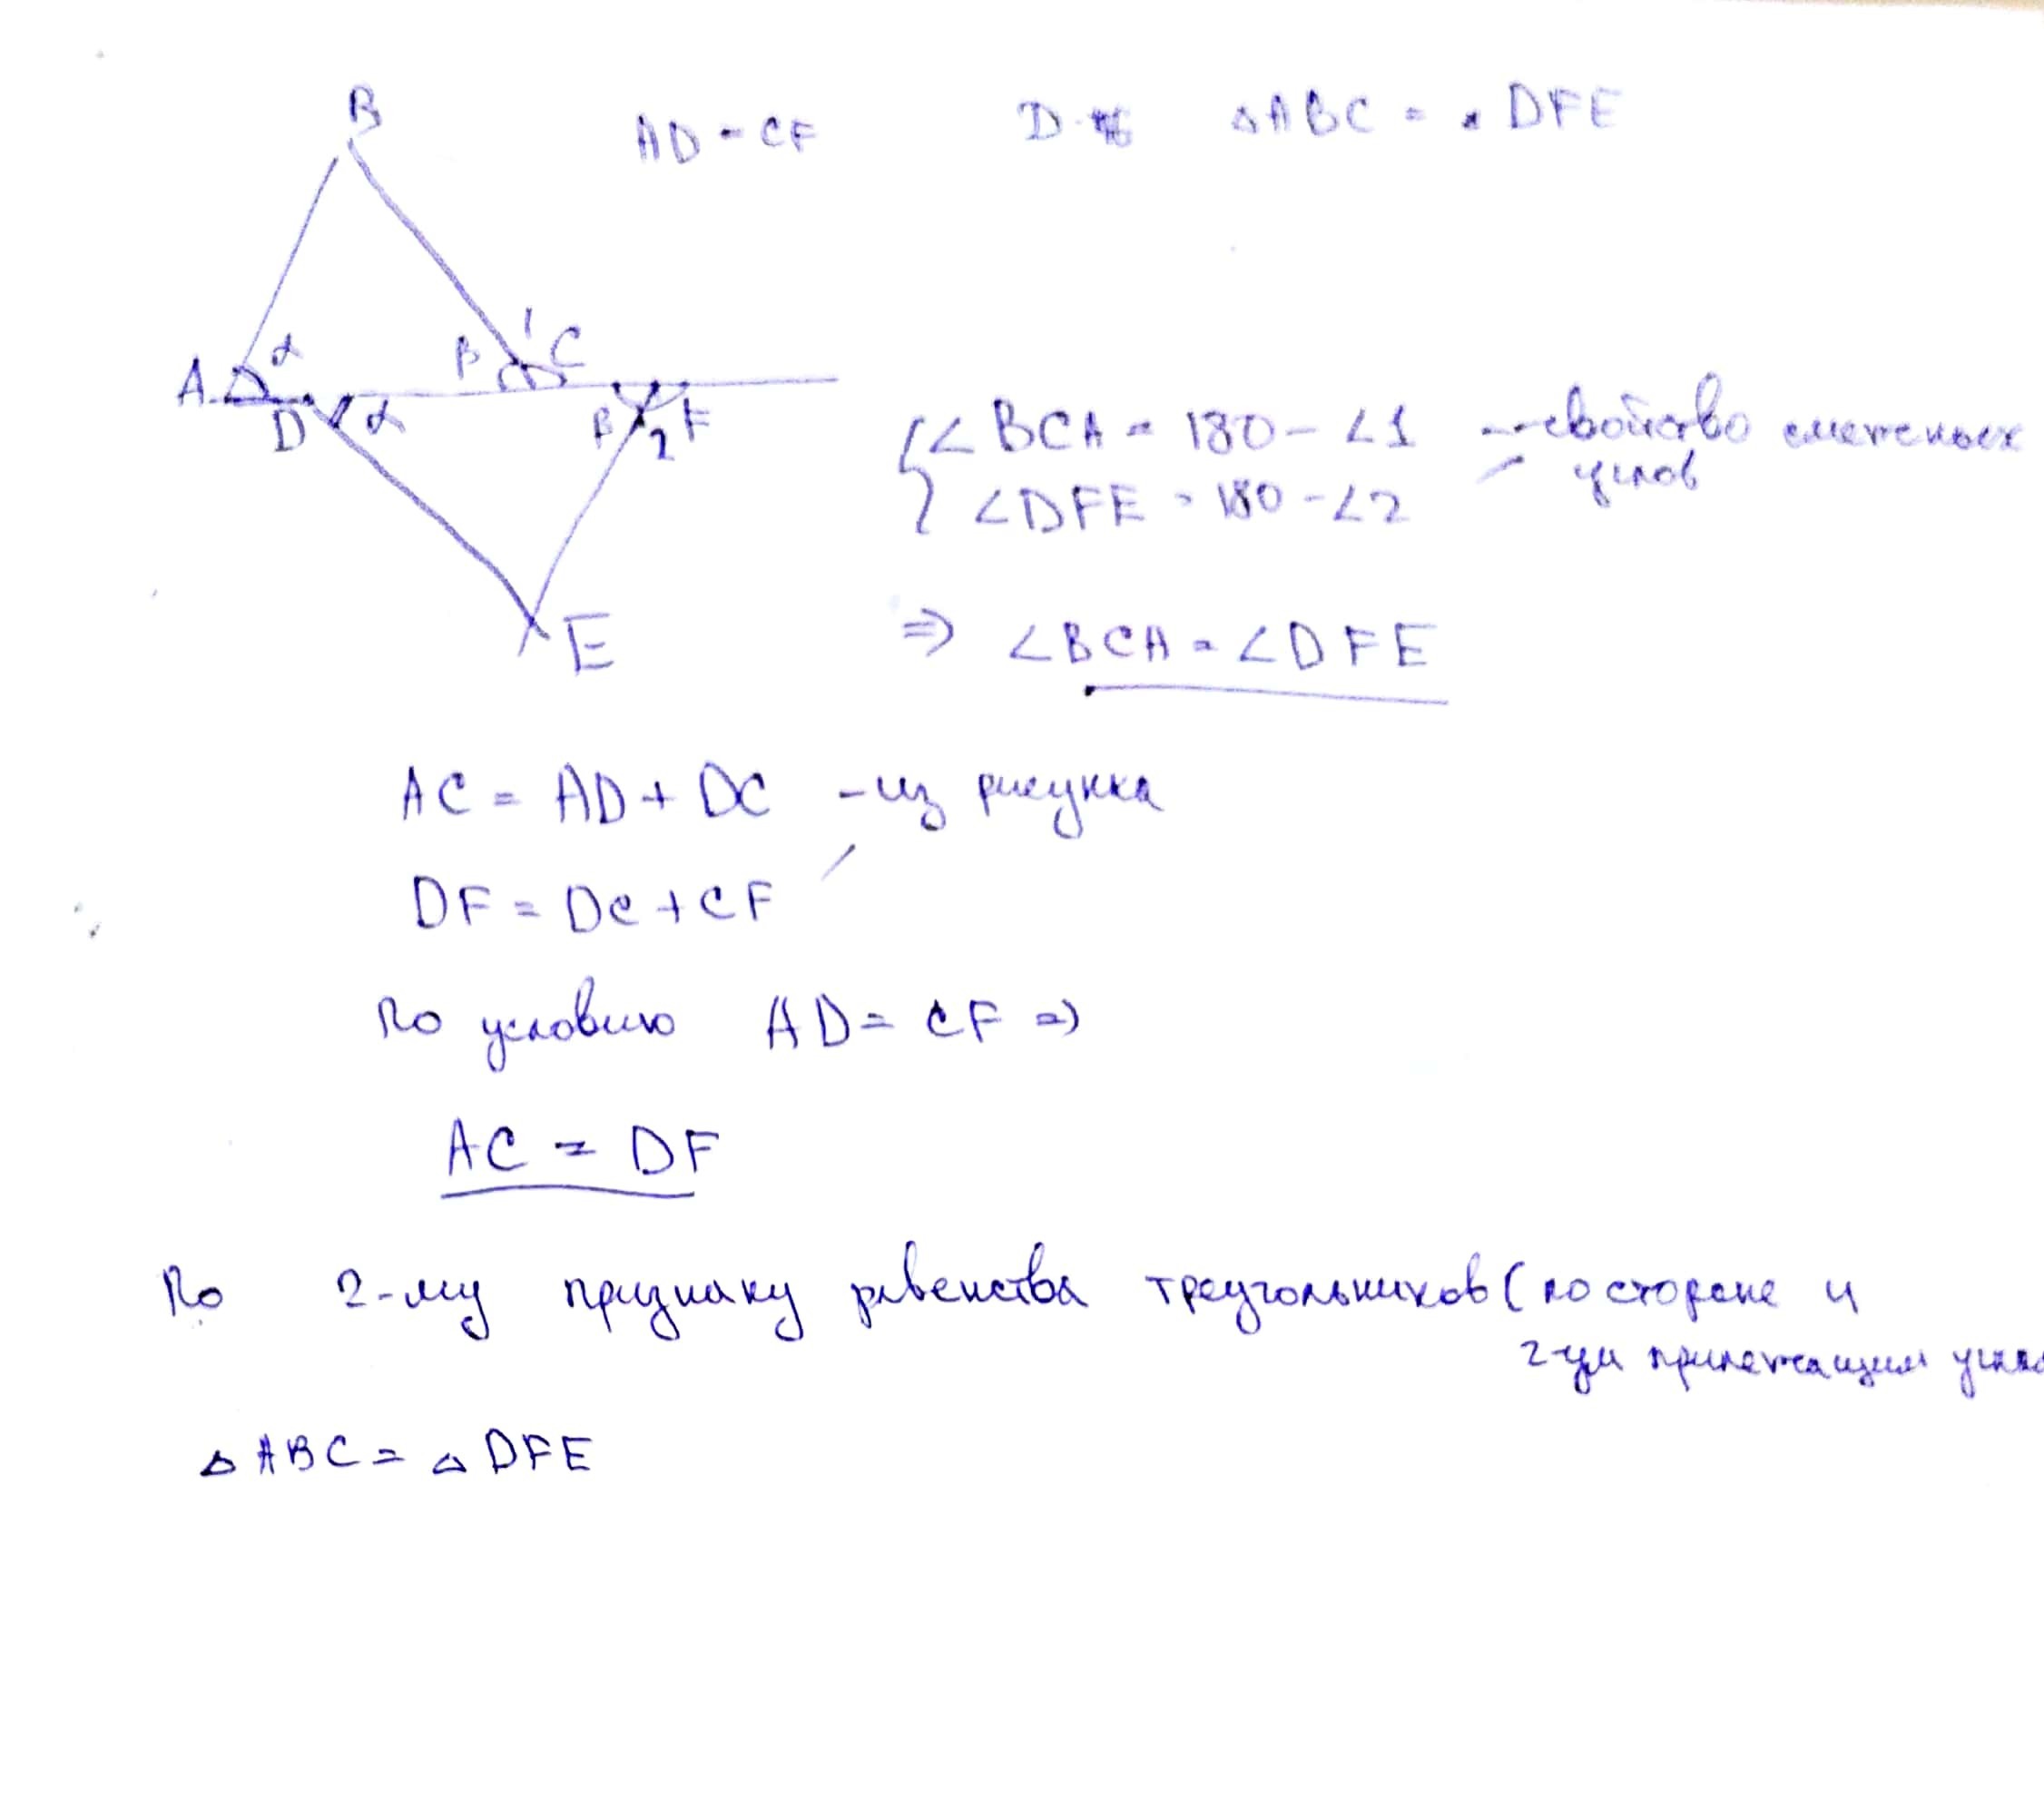 B
AD = CF
D-ть
△ABC = △DFE
A
α
β
1
C
D
α
β
2
F
E
∠BCA = 180 - ∠1 - свойство смежных
углов
∠DFE = 180 - ∠2
⇒ ∠BCA = ∠DFE
AC = AD + DC - из рисунка
DF = DC + CF
По условию AD = CF ⇒
AC = DF
По 2-му признаку равенства треугольников (по стороне и
2-ум прилежащим
△ABC = △DFE